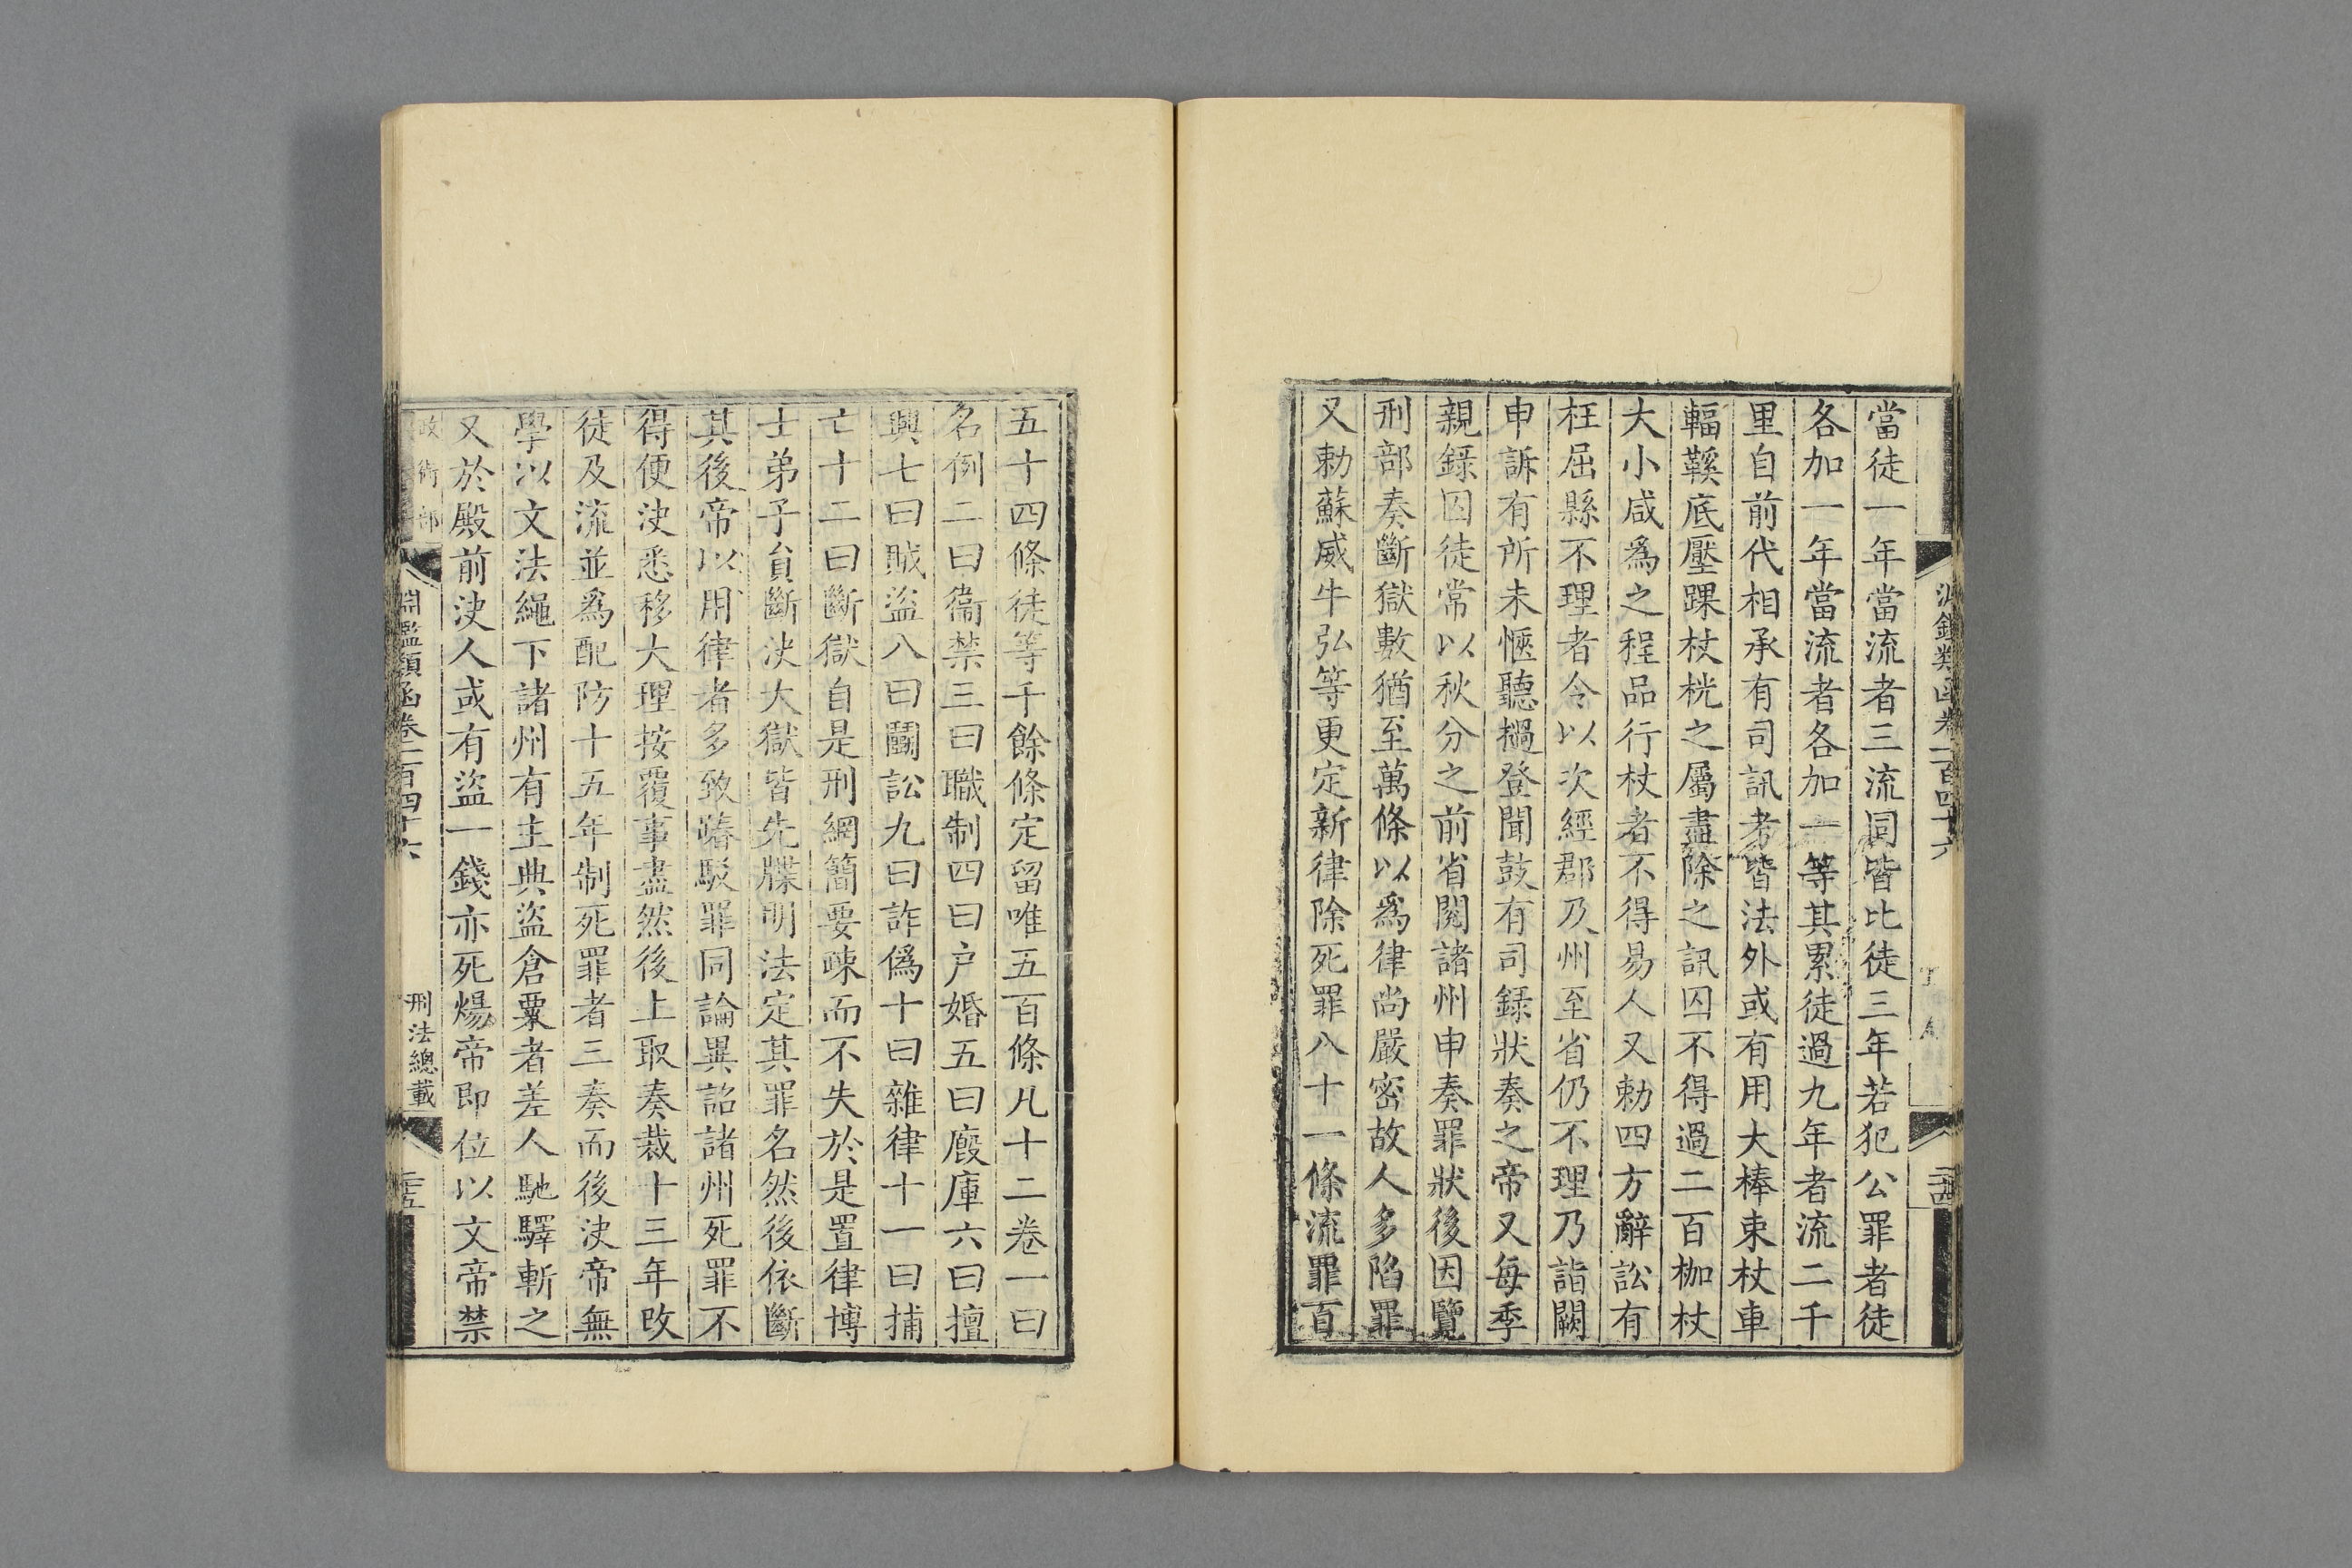 當徒一年當流者三流同皆比徒三年若犯公罪者徒
各加一年當流者各加一等其累徒過九年者流二千
里自前代相承有司訊考皆法外或有用大棒束杖車
輻鞵底壓踝杖桄之屬盡除之訊囚不得過二百枷杖
大小咸爲之程品行杖者不得易人又勅四方辭訟有
枉屈縣不理者令以次經郡及州至省仍不理乃詣闕
申訴有所未愜聽檛登聞鼓有司録狀奏之帝又每季
親録囚徒常以秋分之前省閱諸州申奏罪狀後因覽
刑部奏斷獄數猶至萬條以爲律尚嚴密故人多陷罪
又勅蘇威牛弘等更定新律除死罪八十一條流罪百
五十四條徒等千餘條定留唯五百條凡十二卷一曰
名例二曰衞禁三曰職制四曰户婚五曰廐庫六曰擅
興七曰賊盜八曰鬭訟九曰詐僞十曰雜律十一曰捕
亡十二曰斷獄自是刑網簡要疎而不失於是置律博
士弟子員斷决大獄皆先牒明法定其罪名然後依斷
其後帝以用律者多致踳駁罪同論異詔諸州死罪不
得便决悉移大理按覆事盡然後上取奏裁十三年改
徒及流並爲配防十五年制死罪者三奏而後决帝無
學以文法繩下諸州有主典盜倉粟者差人馳驛斬之
又於殿前决人或有盜一錢亦死煬帝即位以文帝禁
政術部
淵鑑類函卷一百四十六
刑法總載
二十五